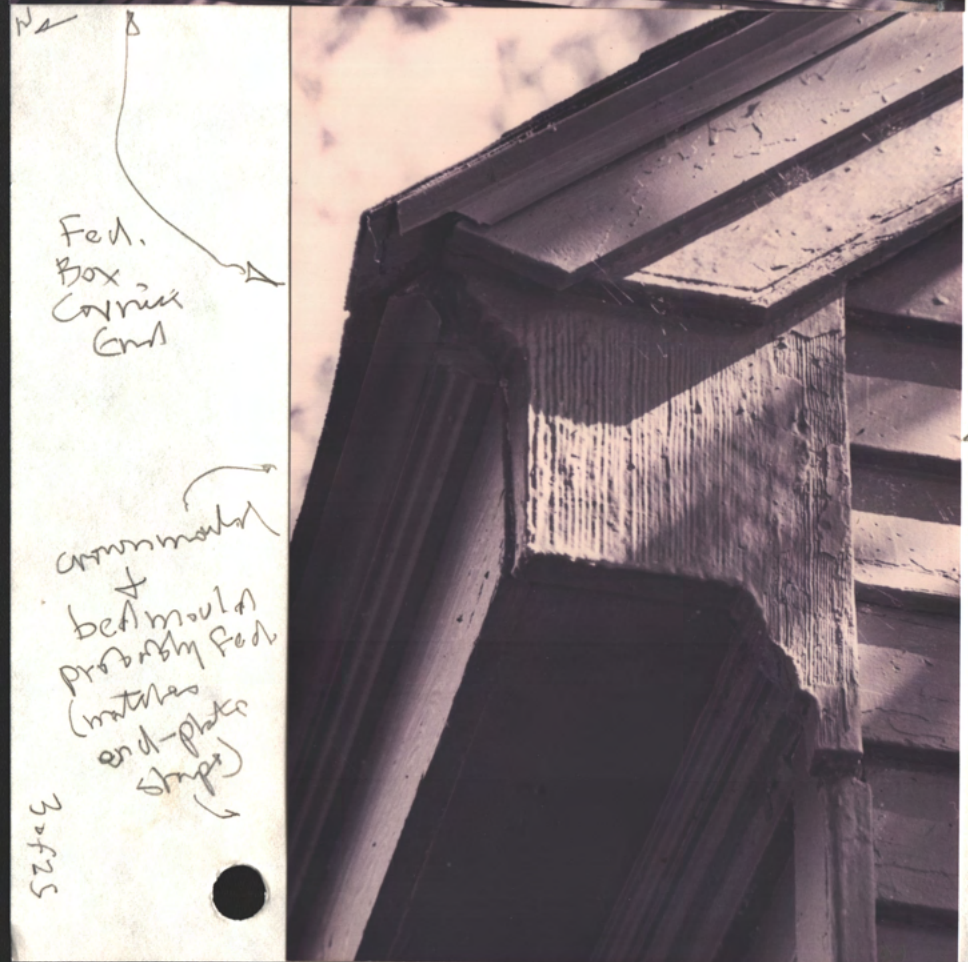 N
Fed.
Box
Cornice
End
crownmould
+
bedmould
probably Fed
(matches
end-plate
shape)
3 of 25